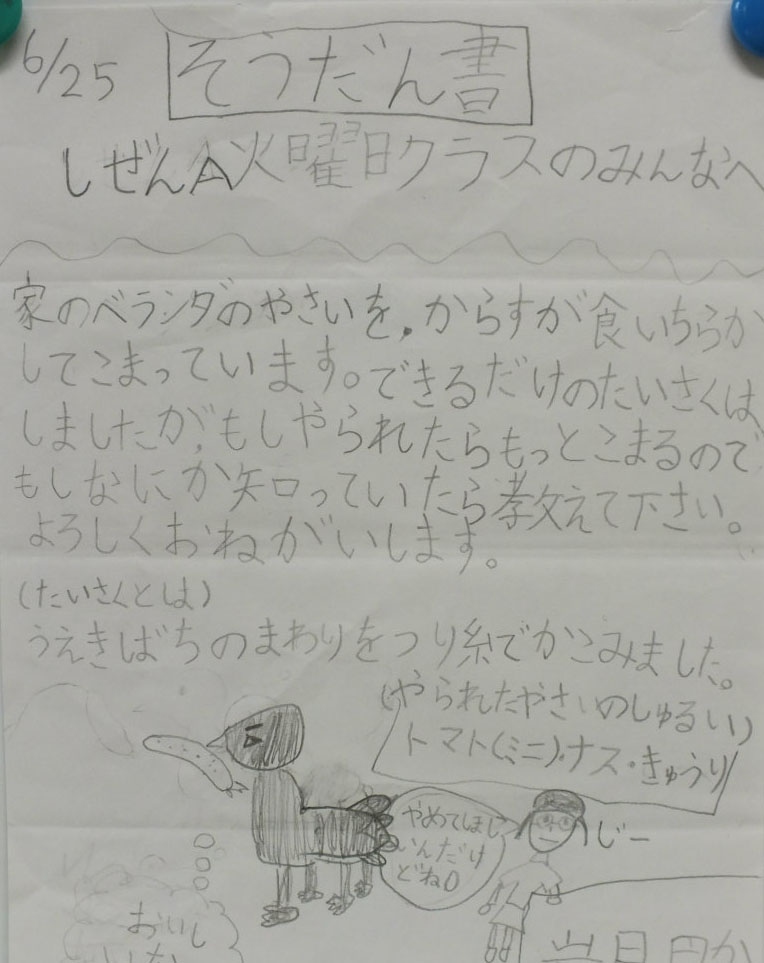 6/25 そうだん書
しぜんA火曜日クラスのみんなへ
家のベランダのやさいを、からすが食いちらか
してこまっています。できるだけのたいさくは、
しましたが、もしやられたらもっとこまるので
もしなにか知っていたら教えて下さい。
よろしくおねがいします。
(たいさくとは)
うえきばちのまわりをつり糸でかこみました。
(やられたやさいのしゅるい)
トマト(ミニ)・ナス・きゅうり
やめてほし
いんだけ
どね
じー
おいし